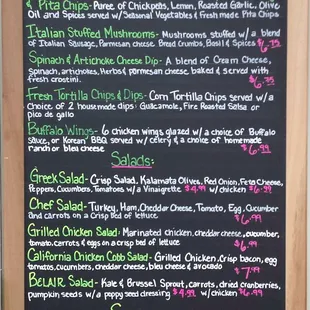 & Pita Chips- Puree of Chickpeas, Lemon, Roasted Garlic, Olive
Oil and Spices served w/ Seasonal Vegetables & fresh made Pita Chips
Italian Stuffed Mushrooms- Mushrooms stuffed w/ a blend
of Italian Sausage, Parmesan cheese Bread Crumbs, Basil & Spices $6.75
Spinach & Artichoke Cheese Dip- A blend of Cream Cheese,
Spinach, artichokes, Herbs & parmesan cheese, baked & served with
fresh crostini. $6.75
Fresh Tortilla Chips & Dips- Corn Tortilla Chips served w/ a
Choice of 2 housemade dips: Guacamole, Fire Roasted Salsa or
pico de gallo
Buffalo Wings- 6 chicken wings glazed w/ a choice of Buffalo
Sauce, or Korean BBQ, served w/ celery & a choice of homemade
ranch or bleu cheese $6.99
Salads:
Greek Salad- Crisp Salad, Kalamata Olives, Red Onion, Feta Cheese,
Peppers, Cucumbers, Tomatoes w/ a Vinaigrette $4.99 w/ chicken $6.99
Chef Salad- Turkey, Ham, Cheddar Cheese, Tomato, Egg, Cucumber
and carrots on a Crisp bed of lettuce $6.99
Grilled Chicken Salad: Marinated chicken, cheddar cheese, cucumber,
tomato, carrots & eggs on a crisp bed of lettuce $6.99
California Chicken Cobb Salad- Grilled Chicken, crisp bacon, egg
tomatoes, cucumbers, cheddar cheese, bleu cheese & avocado $7.99
Belair Salad- Kale & Brussel Sprout, carrots, dried cranberries,
pumpkin seeds w/ a poppy seed dressing $4.99 w/ chicken $6.99